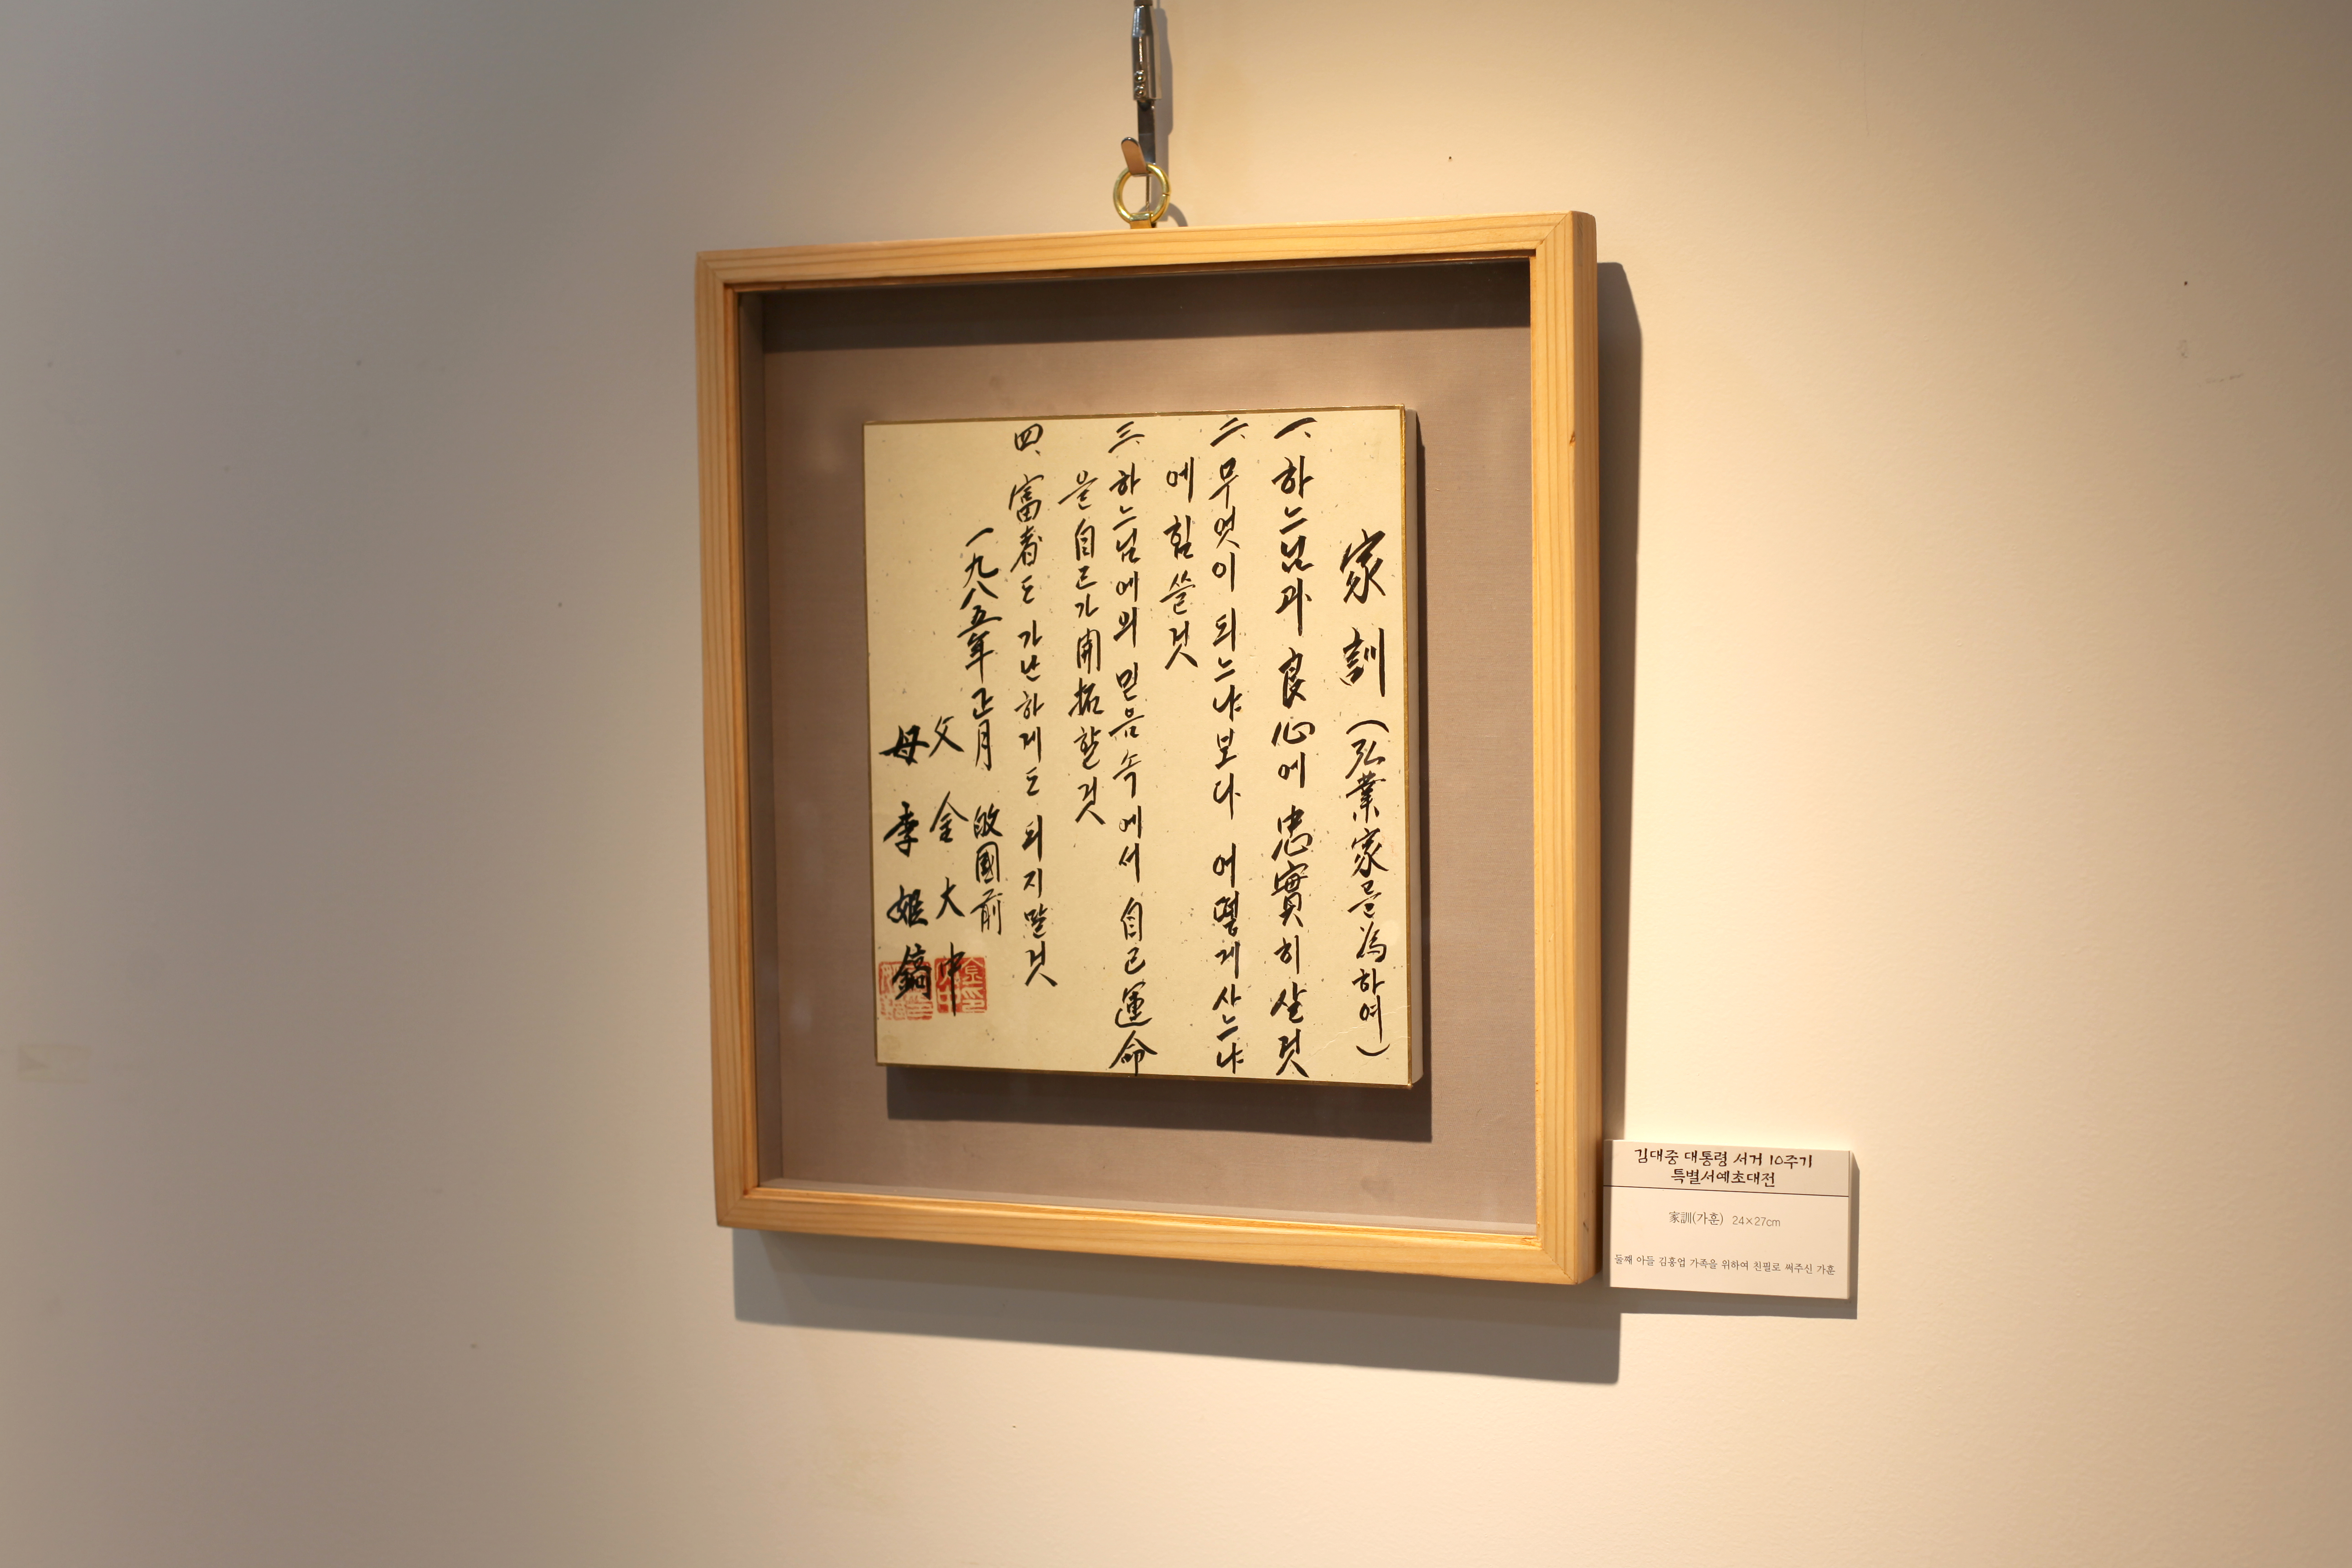 家訓(弘業家를為하여)
一、하느님과 良心에 忠實히살것
二、무엇이 되느냐보다 어떻게사느냐
에 힘쓸것
三、하느님에의 믿음속에서 自己運命
을 自己가 開拓할것
四、富者도 가난하게도 되지말것
一九八五年 正月 故國前
父 金大中
母 李姬鎬
김대중 대통령 서거 10주기
특별서예초대전
家訓(가훈) 24×27cm
둘째 아들 김홍업 가족을 위하여 친필로 써주신 가훈